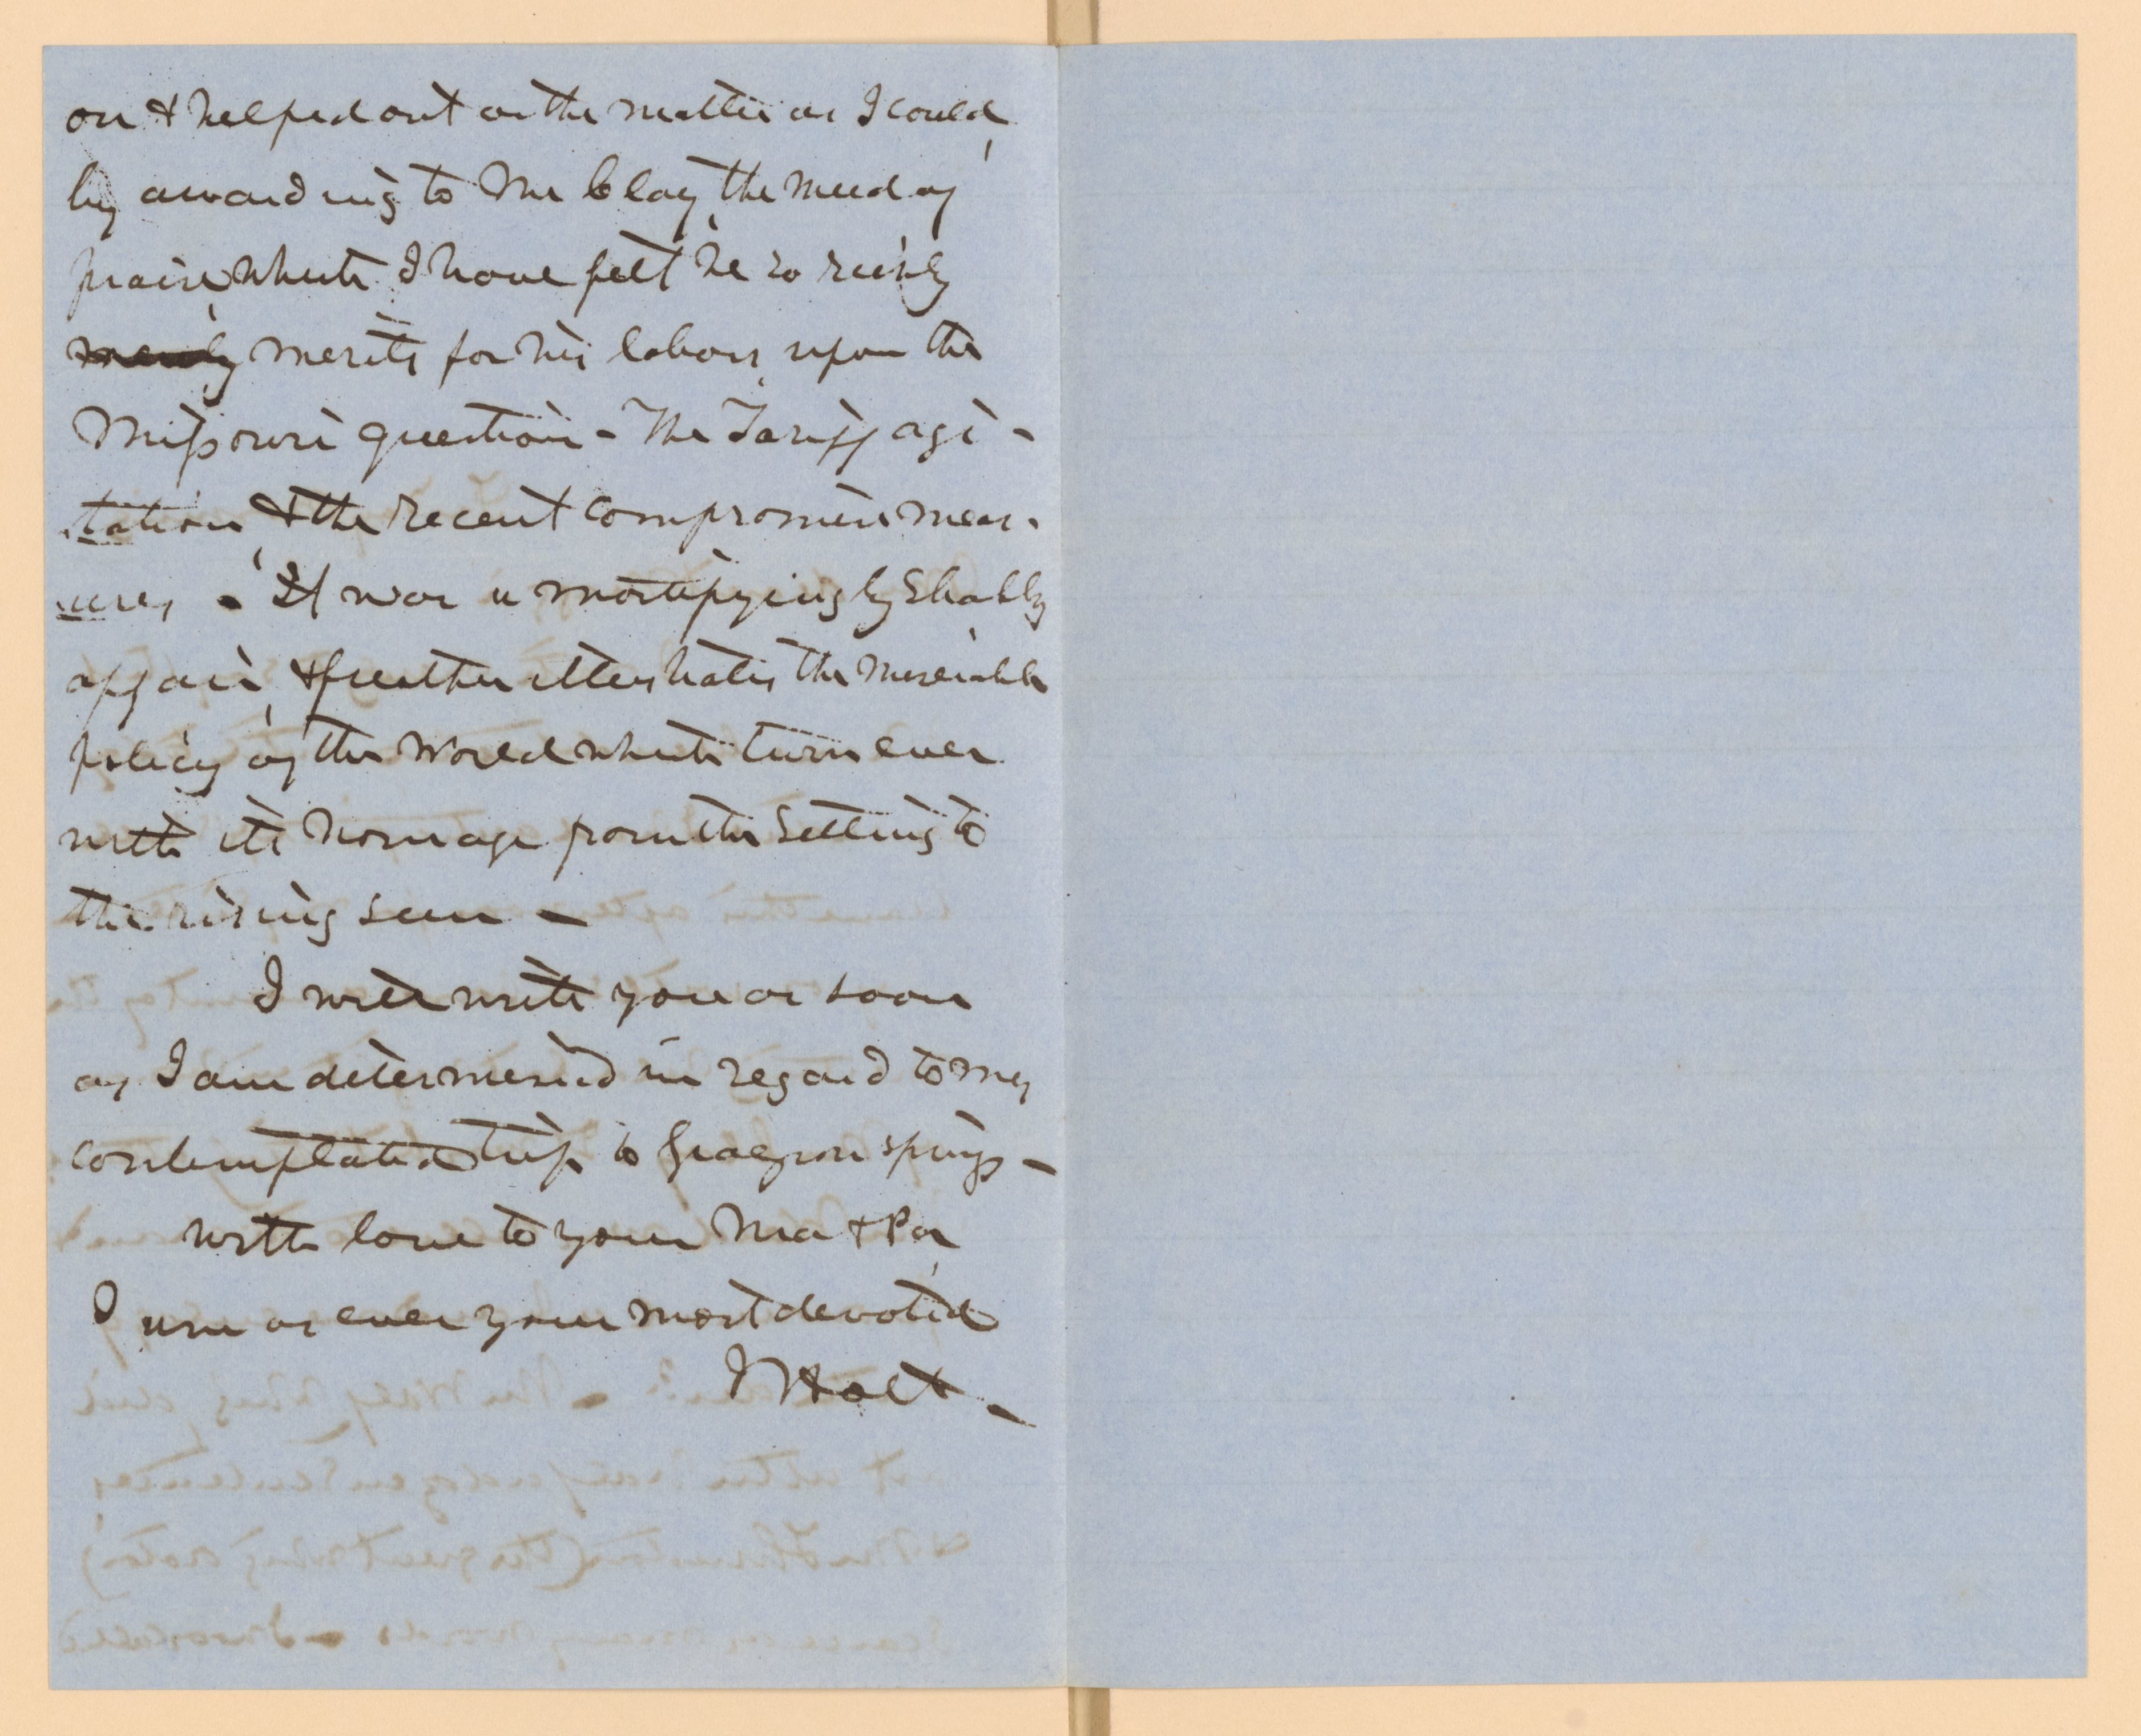 on & helped out as the matter as I could,
by awarding to Mr Clay, the meed of
praise, which I have felt he so richly
merits for his labors, upon the
Missouri question - The Tariff agi-
tation, & the recent compromise meas-
ures, - It was a mortifyingly shabby
affair, & further illustrates the miserable
policy of the world which turns ever
with its homage from the setting to
the rising sun -
I will write you as soon
as I am determined in regard to my
contemplated trip to Grayson springs -
with love to your Ma & Pa,
I am as ever your most devoted
J Holt -